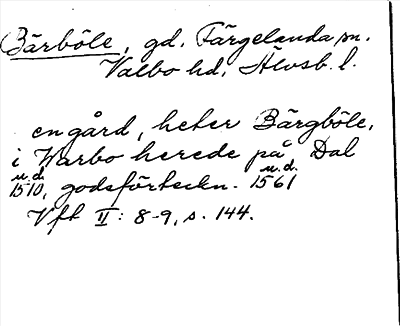 Bärböle, gd. Färgelanda sn.
Valbo hd, Älvsb. l.
en gård, heter Bärgböle,
i Warbo herede på Dal
u.d. u.d.
1510, godsförteckn. 1561
Vft II: 8-9, s. 144.